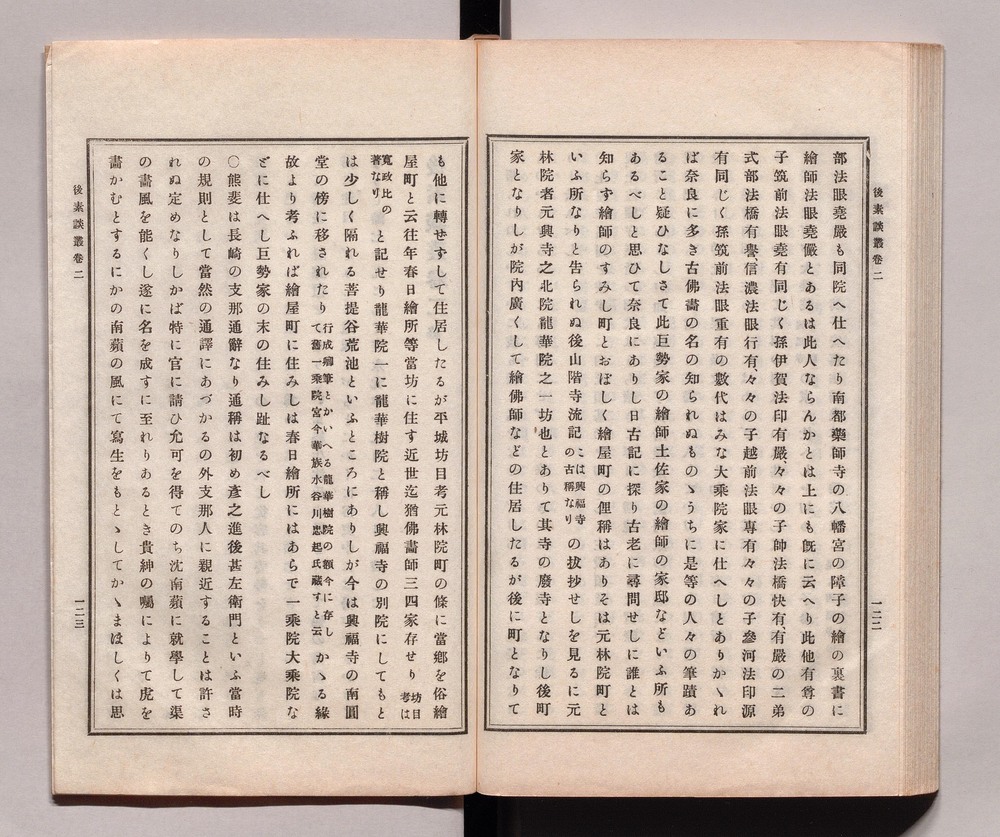 後素談叢卷二
一二二
部法眼堯嚴も同院へ仕へたり南都藥師寺の八幡宮の障子の繪の裏書に
繪師法眼堯儼とあるは此人ならんかとは上にも既に云へり此他有尊の
子筑前法眼堯有同じく孫伊賀法印有嚴、々々の子帥法橋快有有嚴の二弟
式部法橋有譽、信濃法眼行有、々々の子越前法眼専有々々の子參河法印源
有同じく孫筑前法眼重有の數代はみな大乘院家に仕へしとありかヽれ
ば奈良に多き古佛畵の名の知られぬものゝうちに是等の人々の筆蹟あ
ること疑ひなしさて此巨勢家の繪師土佐家の繪師の家邸などいふ所も
あるべしと思ひて奈良にありし日古記に探り古老に尋問せしに誰とは
知らず繪師のすみし町とおぼしく繪屋町の俚稱はありそは元林院町と
いふ所なりと告られぬ後山階寺流記こは興福寺の古稱なりの抜抄せしを見るに元
林院者元興寺之北院龍華院之一坊也とありて其寺の廢寺となりし後町
家となりしが院内廣くして繪佛師などの住居したるが後に町となりて
も他に轉せずして住居したるが平城坊目考元林院町の條に當鄕を俗繪
屋町と云往年春日繪所等當坊に住す近世迄猶佛畵師三四家存せり坊目考は
寬政比の著なりと記せり龍華院一に龍華樹院と稱し興福寺の別院にしてもと
は少しく隔れる菩提谷荒池といふところにありしが今は興福寺の南圓
堂の傍に移されたり行成卿筆とかいへる龍華樹院の額今に存して舊一乘院宮今華族水谷川忠起氏藏すと云かゝる緣
故より考ふれば繪屋町に住みしは春日繪所にはあらで一乘院大乘院な
どに仕へし巨勢家の末の住みし趾なるべし
〇熊斐は長崎の支那通辭なり通稱は初め彥之進後甚左衛門といふ當時
の規則として當然の通譯にあづかるの外支那人に親近することは許さ
れぬ定めなりしかば特に官に請ひ允可を得てのち沈南蘋に就學して渠
の畵風を能くし遂に名を成すに至れりあるとき貴紳の囑によりて虎を
畵かむとするにかの南蘋の風にて寫生をもとゝしてかゝまほしくは思
後素談叢卷二
一二三